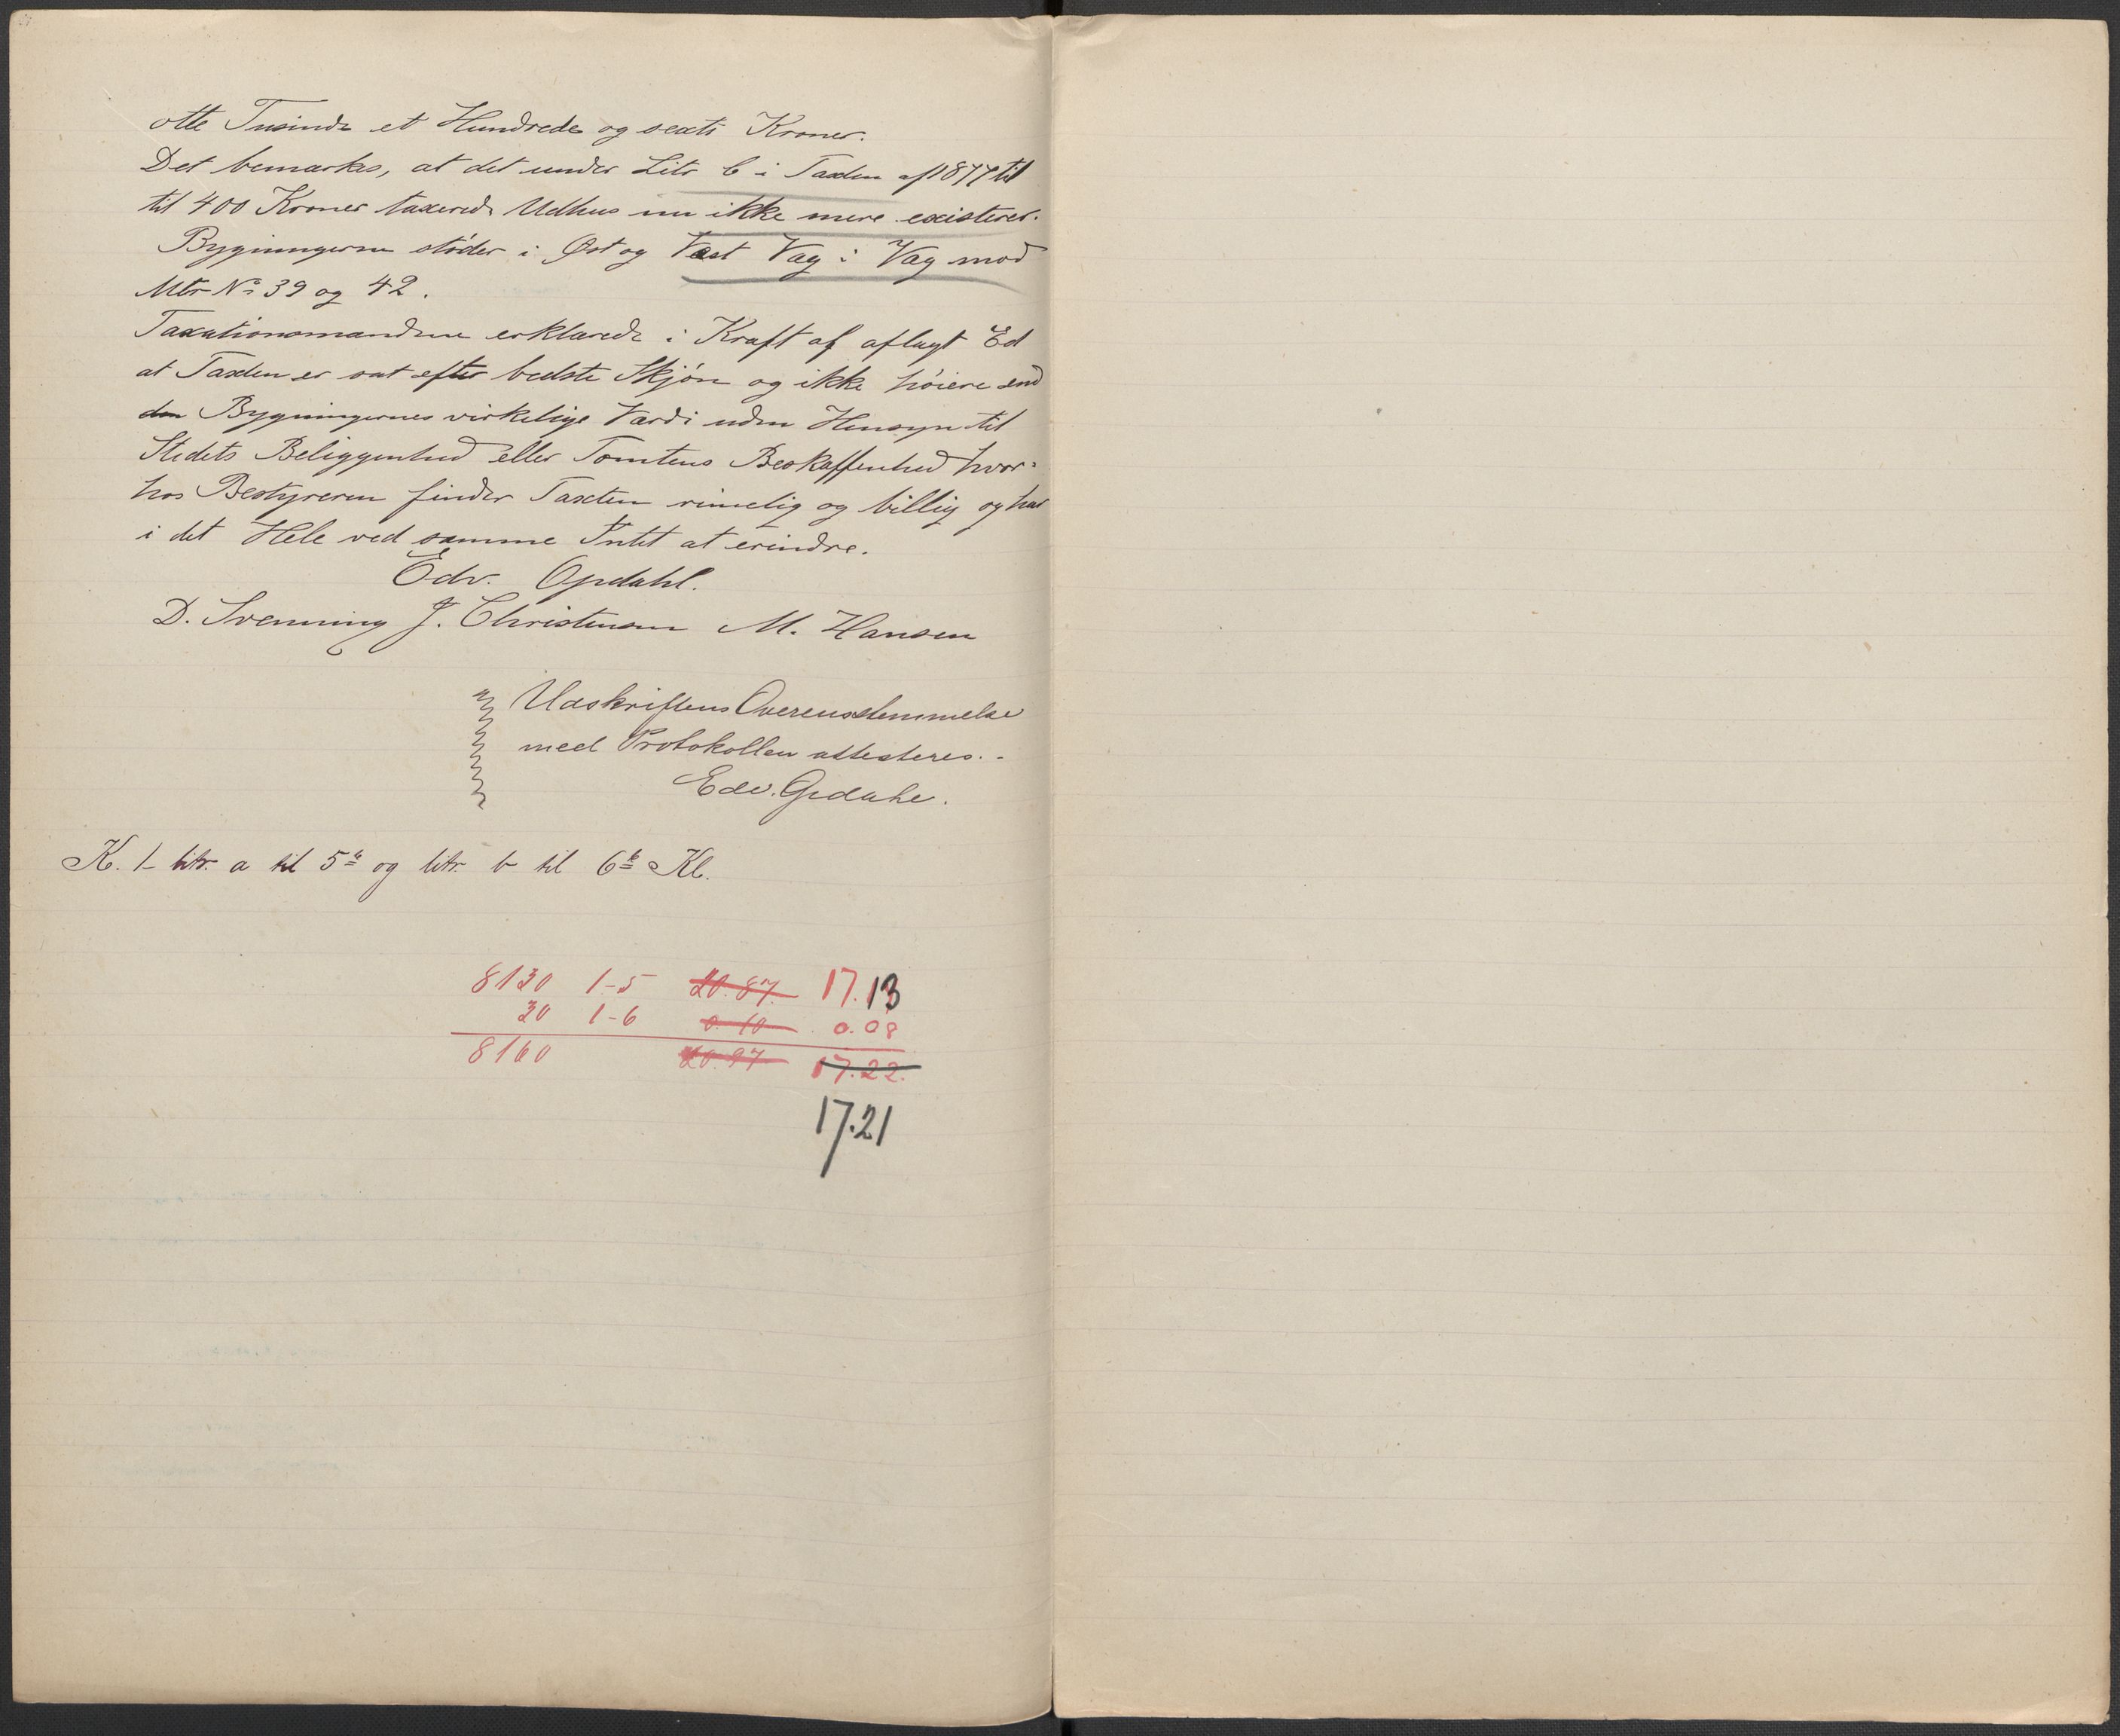 otte Tusinde et Hundrede og sexti Kroner.
Det bemærkes, at det under Litr C i Taxten af 1877 til
til 400 Kroner taxerede Udhus nu ikke mere existerer.
Bygningerne støder i Øst og Vest Væg i Væg mod
Mtr No 39 og 42.
Taxationsmændene erklærede i Kraft af aflagt Ed
at Taxten er sat efter bedste Skjøn og ikke høiere end
den Bygningernes virkelige Værdi uden Hensyn til
Stedets Beliggenhed eller Tomtens Beskaffenhed hvor-
hos Bestyreren finder Taxten rimelig og billig og har
i det Hele ved samme Intet at erindre.
Edv. Opdahl.
D. Svenning J. Christensen M. Hansen
Udskriftens Overensstemmelse
med Protokollen attesteres.-
Edv. Opdahl.
K. 1 - litr. a til 5te og litr. b til 6te Kl.
8130 1-5 20.87 17.13
30 1-6 0.10 0.08
8160 20.97 17.22.
17.21